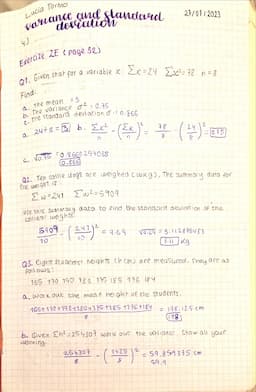 Lucia
variance and standard
deviation
23/01/2023
Exercise 2E (page 32)
Q1. Given that for a variable x: Σx=24 Σx²=78 n=8
Find:
a. the mean = 3
b. The variance σ² = 0.75
c. the standard deviation σ = 0.866
a. 24÷8 = 3 b. Σx²/n - (Σx/n)² = 78/8 - (24/8)² = 0.75
c. √0.75 = 0.8660254038
0.866
Q2. Ten collie dogs are weighed (w kg). The summary data for
the weight is:
Σw=241 Σw²=5909
Use this summary data to find the standard deviation of the
collies' weights.
5909/10 - (241/10)² =
3.11 kg
Q3. Eight students' heights (h cm) are measured. They are as
follows:
165 170 190 180 175 185 176 184
a, work out the mean height of the students.
165+170+190+180+175+185+176+184/8 = 178.125 cm
178
b. Given Σh²=254307 work out the variance. Show all your
working.
254307/8 - (1425/8)² = 59.859375 cm
59.9